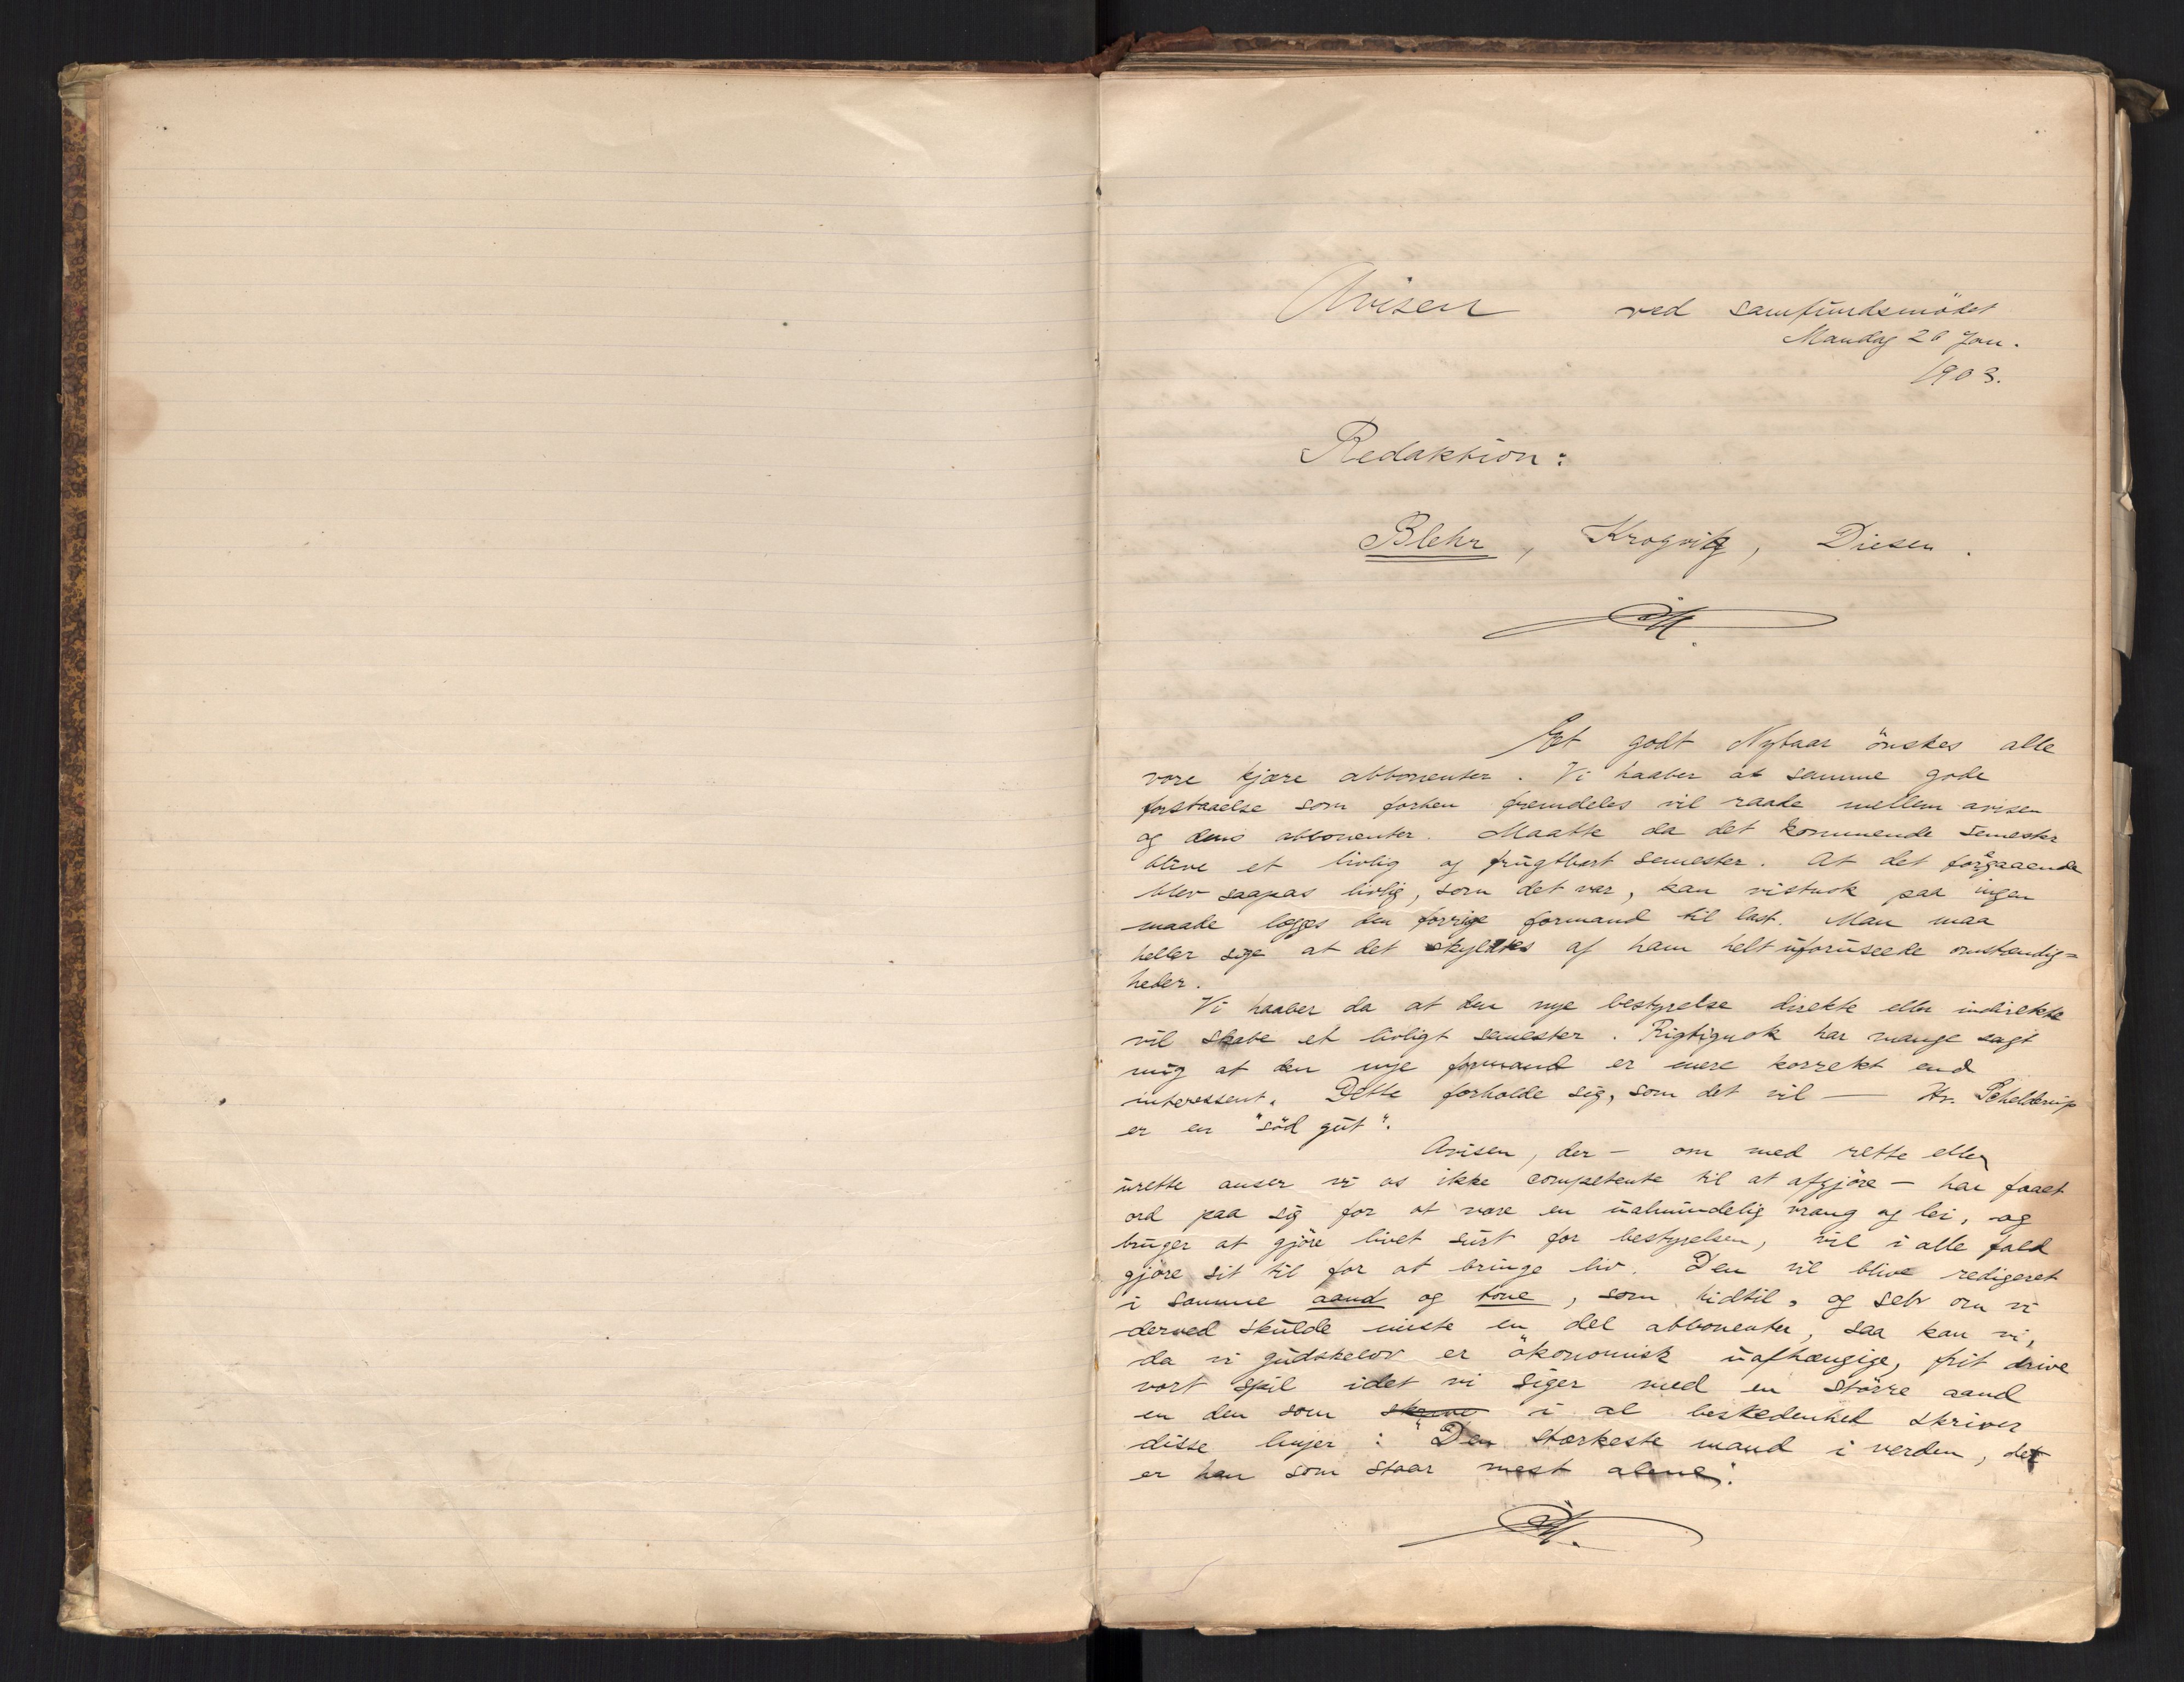 Avisen ved samfundsmödet
Mandag 26 Jan.
1903.
Redaktion:
Blehr, Krogvig, Diesen.
Et godt Nytaar önskes alle
vore kjære abbonenter. Vi haaber at samme gode
forstaaelse som forhen fremdeles vil raade mellem avisen
og dens abbonenter. Maatte da det kommende semester
blive et livlig og frugtbart semester. At det forgaaende
blev saapas livlig, som det var, kan vistnok paa ingen
maade lægges den forrige formand til last. Man maa
heller sige at det skyldtes af ham helt uforuseede omstændig=
heder.
Vi haaber da at den nye bestyrelse direkte eller indirekte
vil skabe et livligt semester. Rigtignok har mange sagt
mig at den nye formand er mere korrekt end
interessent. Dette forholde sig, som det vil — Hr. Schelderup
er en "söd gut".
Avisen, der — om med rette eller
urette anser vi os ikke competente til at afgjöre — har faaet
ord paa sig for at være en ualmindelig vrang og lei, og
bruger at gjöre livet surt for bestyrelsen, vil i alle fald
gjöre sit til for at bringe liv. Den vil blive redigeret
i samme aand og tone, som hidtil, og selv om vi
derved skulde miste en del abbonenter, saa kan vi,
da vi gudskelov er ökonomisk uafhængige, frit drive
vort spil idet vi siger med en större aand
en den som skriver i al beskedenhed skriver
disse linjer: "Den stærkeste mand i verden, det
er han som staar mest alene".